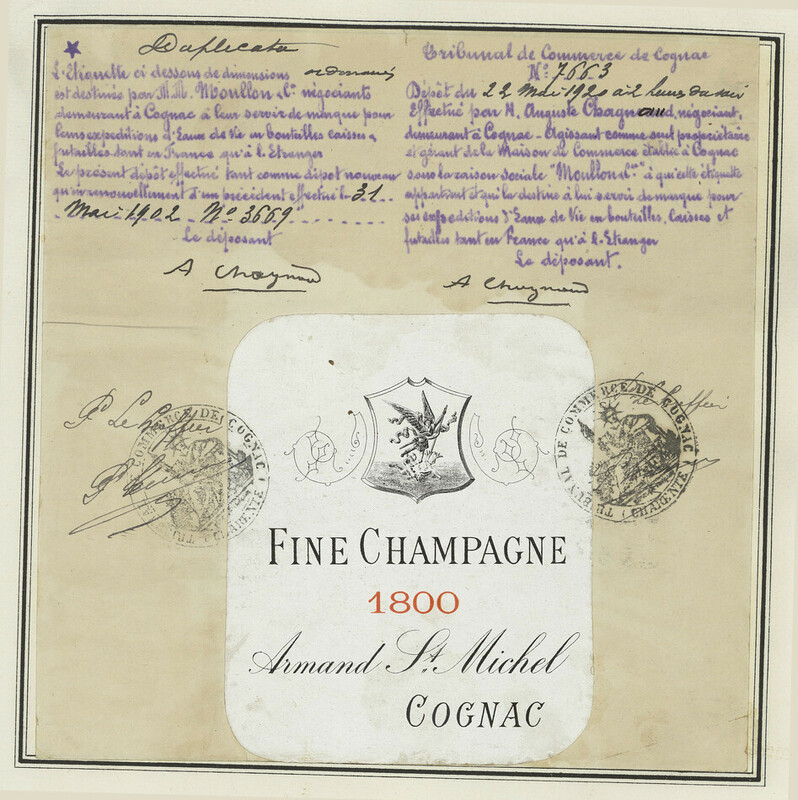 Duplicata
L'Etiquette ci dessous de dimensions ordinaires
est destinée par M.M. Moullon & Cie négociants
demeurant à Cognac à leur servir de marque pour
leurs expéditions d'Eaux de Vie en bouteilles caisses &
futailles tant en France qu'à l'Etranger
Le présent dépôt effectué tant comme dépot nouveau
qu'en renouvellement d'un précédent effectué le 31
Mai 1902 No 3669
Le déposant
A Chaynaud
Tribunal de Commerce de Cognac
No 7663
Dépôt du 22 Mai 1920 à 2 heures du soir
Effectué par M. Auguste Chagnaud, négociant,
demeurant à Cognac - Agissant comme seul propriétaire
et gérant de la Maison de Commerce établie à Cognac
sous la raison sociale "Moullon & Cie" à qui cette étiquette
appartient et qui la destine à lui servir de marque pour
ses expéditions d'Eaux de Vie en bouteilles, caisses et
futailles tant en France qu'à l'Etranger
Le déposant.
A Chaynaud
P. Le Greffier
TRIBUNAL DE COMMERCE DE COGNAC
(CHARENTE)
TRIBUNAL DE COMMERCE DE COGNAC
(CHARENTE)
FINE CHAMPAGNE
1800
Armand St. Michel
COGNAC